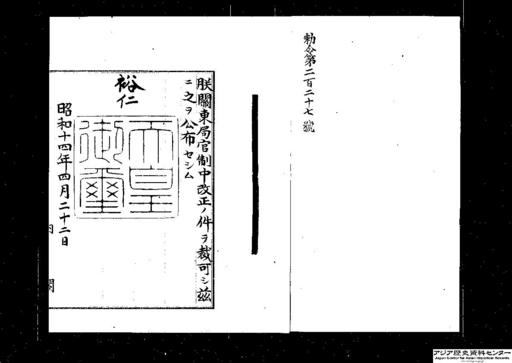 勅令第二百二十七號
朕關東局官制中改正ノ件ヲ裁可シ茲
ニ之ヲ公布セシム
裕仁
天皇
御璽
昭和十四年四月二十二日
内閣
アジア歴史資料センター
Japan Center for Asian Historical Records